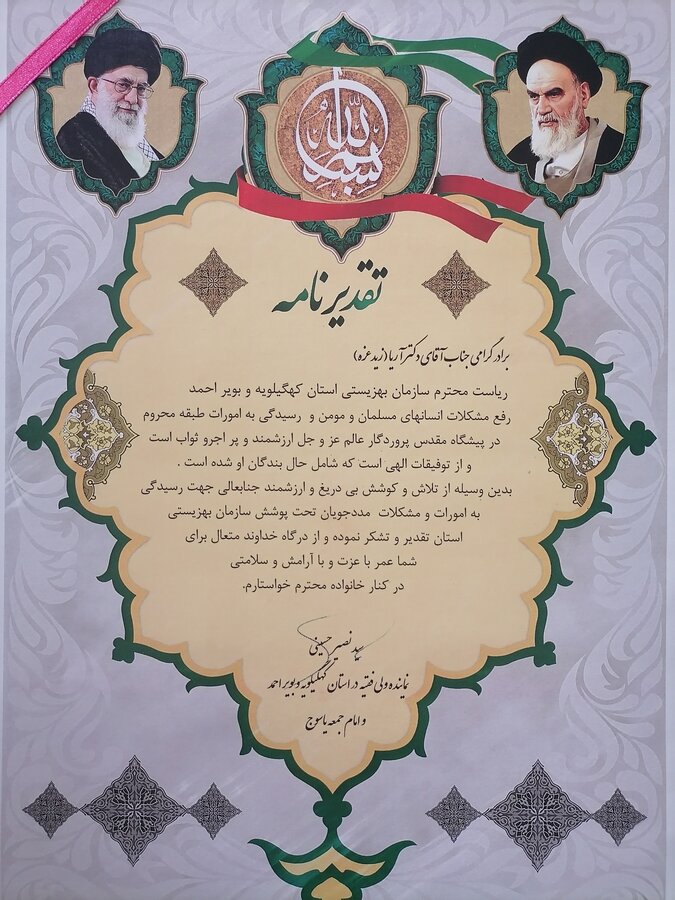 بسم الله
تقدیرنامه
برادر گرامی جناب آقای دکتر آریا (زید عزه)
ریاست محترم سازمان بهزیستی استان کهگیلویه و بویر احمد
رفع مشکلات انسانهای مسلمان و مومن و رسیدگی به امورات طبقه محروم
در پیشگاه مقدس پروردگار عالم عز و جل ارزشمند و پر اجرو ثواب است
و از توفیقات الهی است که شامل حال بندگان او شده است .
بدین وسیله از تلاش و کوشش بی دریغ و ارزشمند جنابعالی جهت رسیدگی
به امورات و مشکلات مددجویان تحت پوشش سازمان بهزیستی
استان تقدیر و تشکر نموده و از درگاه خداوند متعال برای
شما عمر با عزت و با آرامش و سلامتی
در کنار خانواده محترم خواستارم.
سید نصیر حسینی
نماینده ولی فقیه در استان کهگیلویه و بویر احمد
و امام جمعه یاسوج